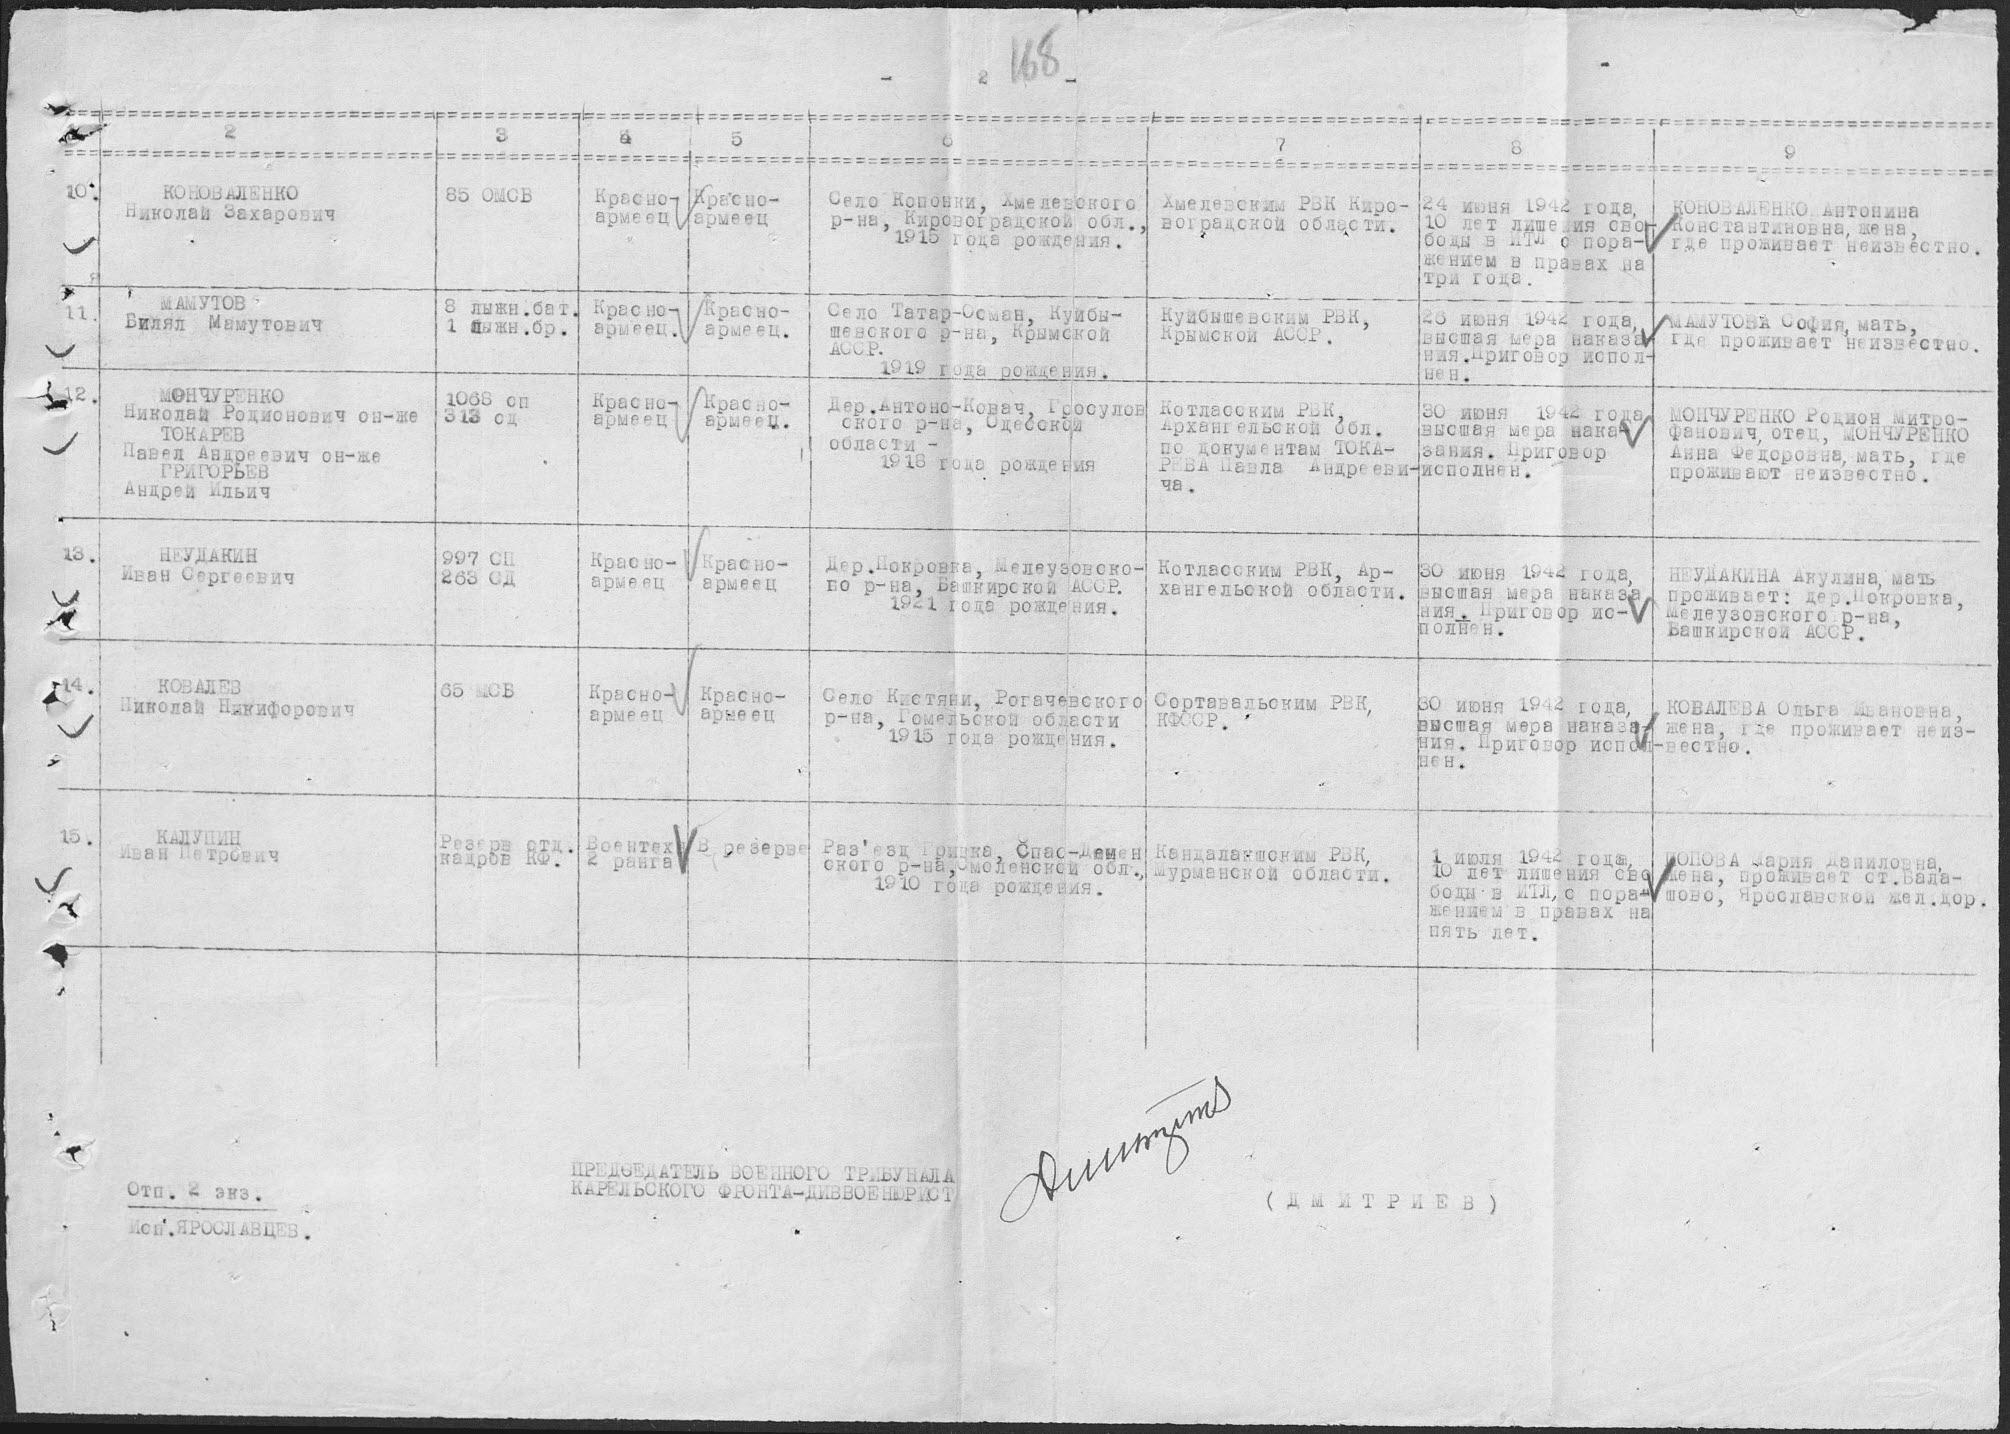 - 2 -
168
2 3 4 5 6 7 8 9
10.
КОНОВАЛЕНКО
Николай Захарович
85 ОМСБ
Красно-
армеец
Красно-
армеец
Село Копонки, Хмелевского
р-на, Кировоградской обл.,
1915 года рождения.
Хмелевским РВК Киро-
воградской области.
24 июня 1942 года,
10 лет лишения сво-
боды в ИТЛ с пора-
жением в правах на
три года.
КОНОВАЛЕНКО Антонина
Константиновна, жена,
где проживает неизвестно.
11.
МАМУТОВ
Билял Мамутович
8 лыжн.бат.
1 лыжн.бр.
Красно-
армеец.
Красно-
армеец.
Село Татар-Осман, Куйбы-
шевского р-на, Крымской
АССР.
1919 года рождения.
Куйбышевским РВК,
Крымской АССР.
28 июня 1942 года,
высшая мера наказа-
ния. Приговор испол-
нен.
МАМУТОВА София, мать,
где проживает неизвестно.
12.
МОНЧУРЕНКО
Николай Родионович он-же
ТОКАРЕВ
Павел Андреевич он-же
ГРИГОРЬЕВ
Андрей Ильич
1068 сп
313 сд
Красно-
армеец
Красно-
армеец.
Дер.Антоно-Ковач, Гросулов
ского р-на, Одесской
области -
1918 года рождения
Котласским РВК,
Архангельской обл.
по документам ТОКА-
РЕВА Павла Андрееви-
ча.
30 июня 1942 года
высшая мера нака-
зания. Приговор
исполнен.
МОНЧУРЕНКО Родион Митро-
фанович, отец, МОНЧУРЕНКО
Анна Федоровна, мать, где
проживают неизвестно.
13.
НЕУДАКИН
Иван Сергеевич
997 СП
263 СД
Красно-
армеец
Красно-
армеец
Дер.Покровка, Мелеузовско-
го р-на, Башкирской АССР.
1921 года рождения.
Котласским РВК, Ар-
хангельской области.
30 июня 1942 года,
высшая мера наказа
ния. Приговор ис-
полнен.
НЕУДАКИНА Акулина, мать
проживает: дер.Покровка,
Мелеузовского р-на,
Башкирской АССР.
14.
КОВАЛЕВ
Николай Никифорович
65 МСБ
Красно-
армеец
Красно-
армеец
Село Кистяни, Рогачевского
р-на, Гомельской области
1915 года рождения.
Сортавальским РВК,
КФССР.
30 июня 1942 года,
высшая мера наказа-
ния. Приговор испол-
нен.
КОВАЛЕВА Ольга Ивановна,
жена, где проживает неиз-
вестно.
15.
КАЛУПИН
Иван Петрович
Резерв отд.
кадров КФ.
Воентех
2 ранга
В резерве
Раз'езд Гривка, Спас-Демен
ского р-на, Смоленской обл.,
1910 года рождения.
Кандалакшским РВК,
Мурманской области.
1 июля 1942 года,
10 лет лишения сво
боды в ИТЛ, с пора-
жением в правах на
пять лет.
ПОПОВА Мария Даниловна,
жена, проживает ст.Бала-
шово, Ярославской жел.дор.
ПРЕДСЕДАТЕЛЬ ВОЕННОГО ТРИБУНАЛА
КАРЕЛЬСКОГО ФРОНТА-ДИВВОЕНЮРИСТ
(ДМИТРИЕВ)
Отп. 2 экз.
Исп.ЯРОСЛАВЦЕВ.